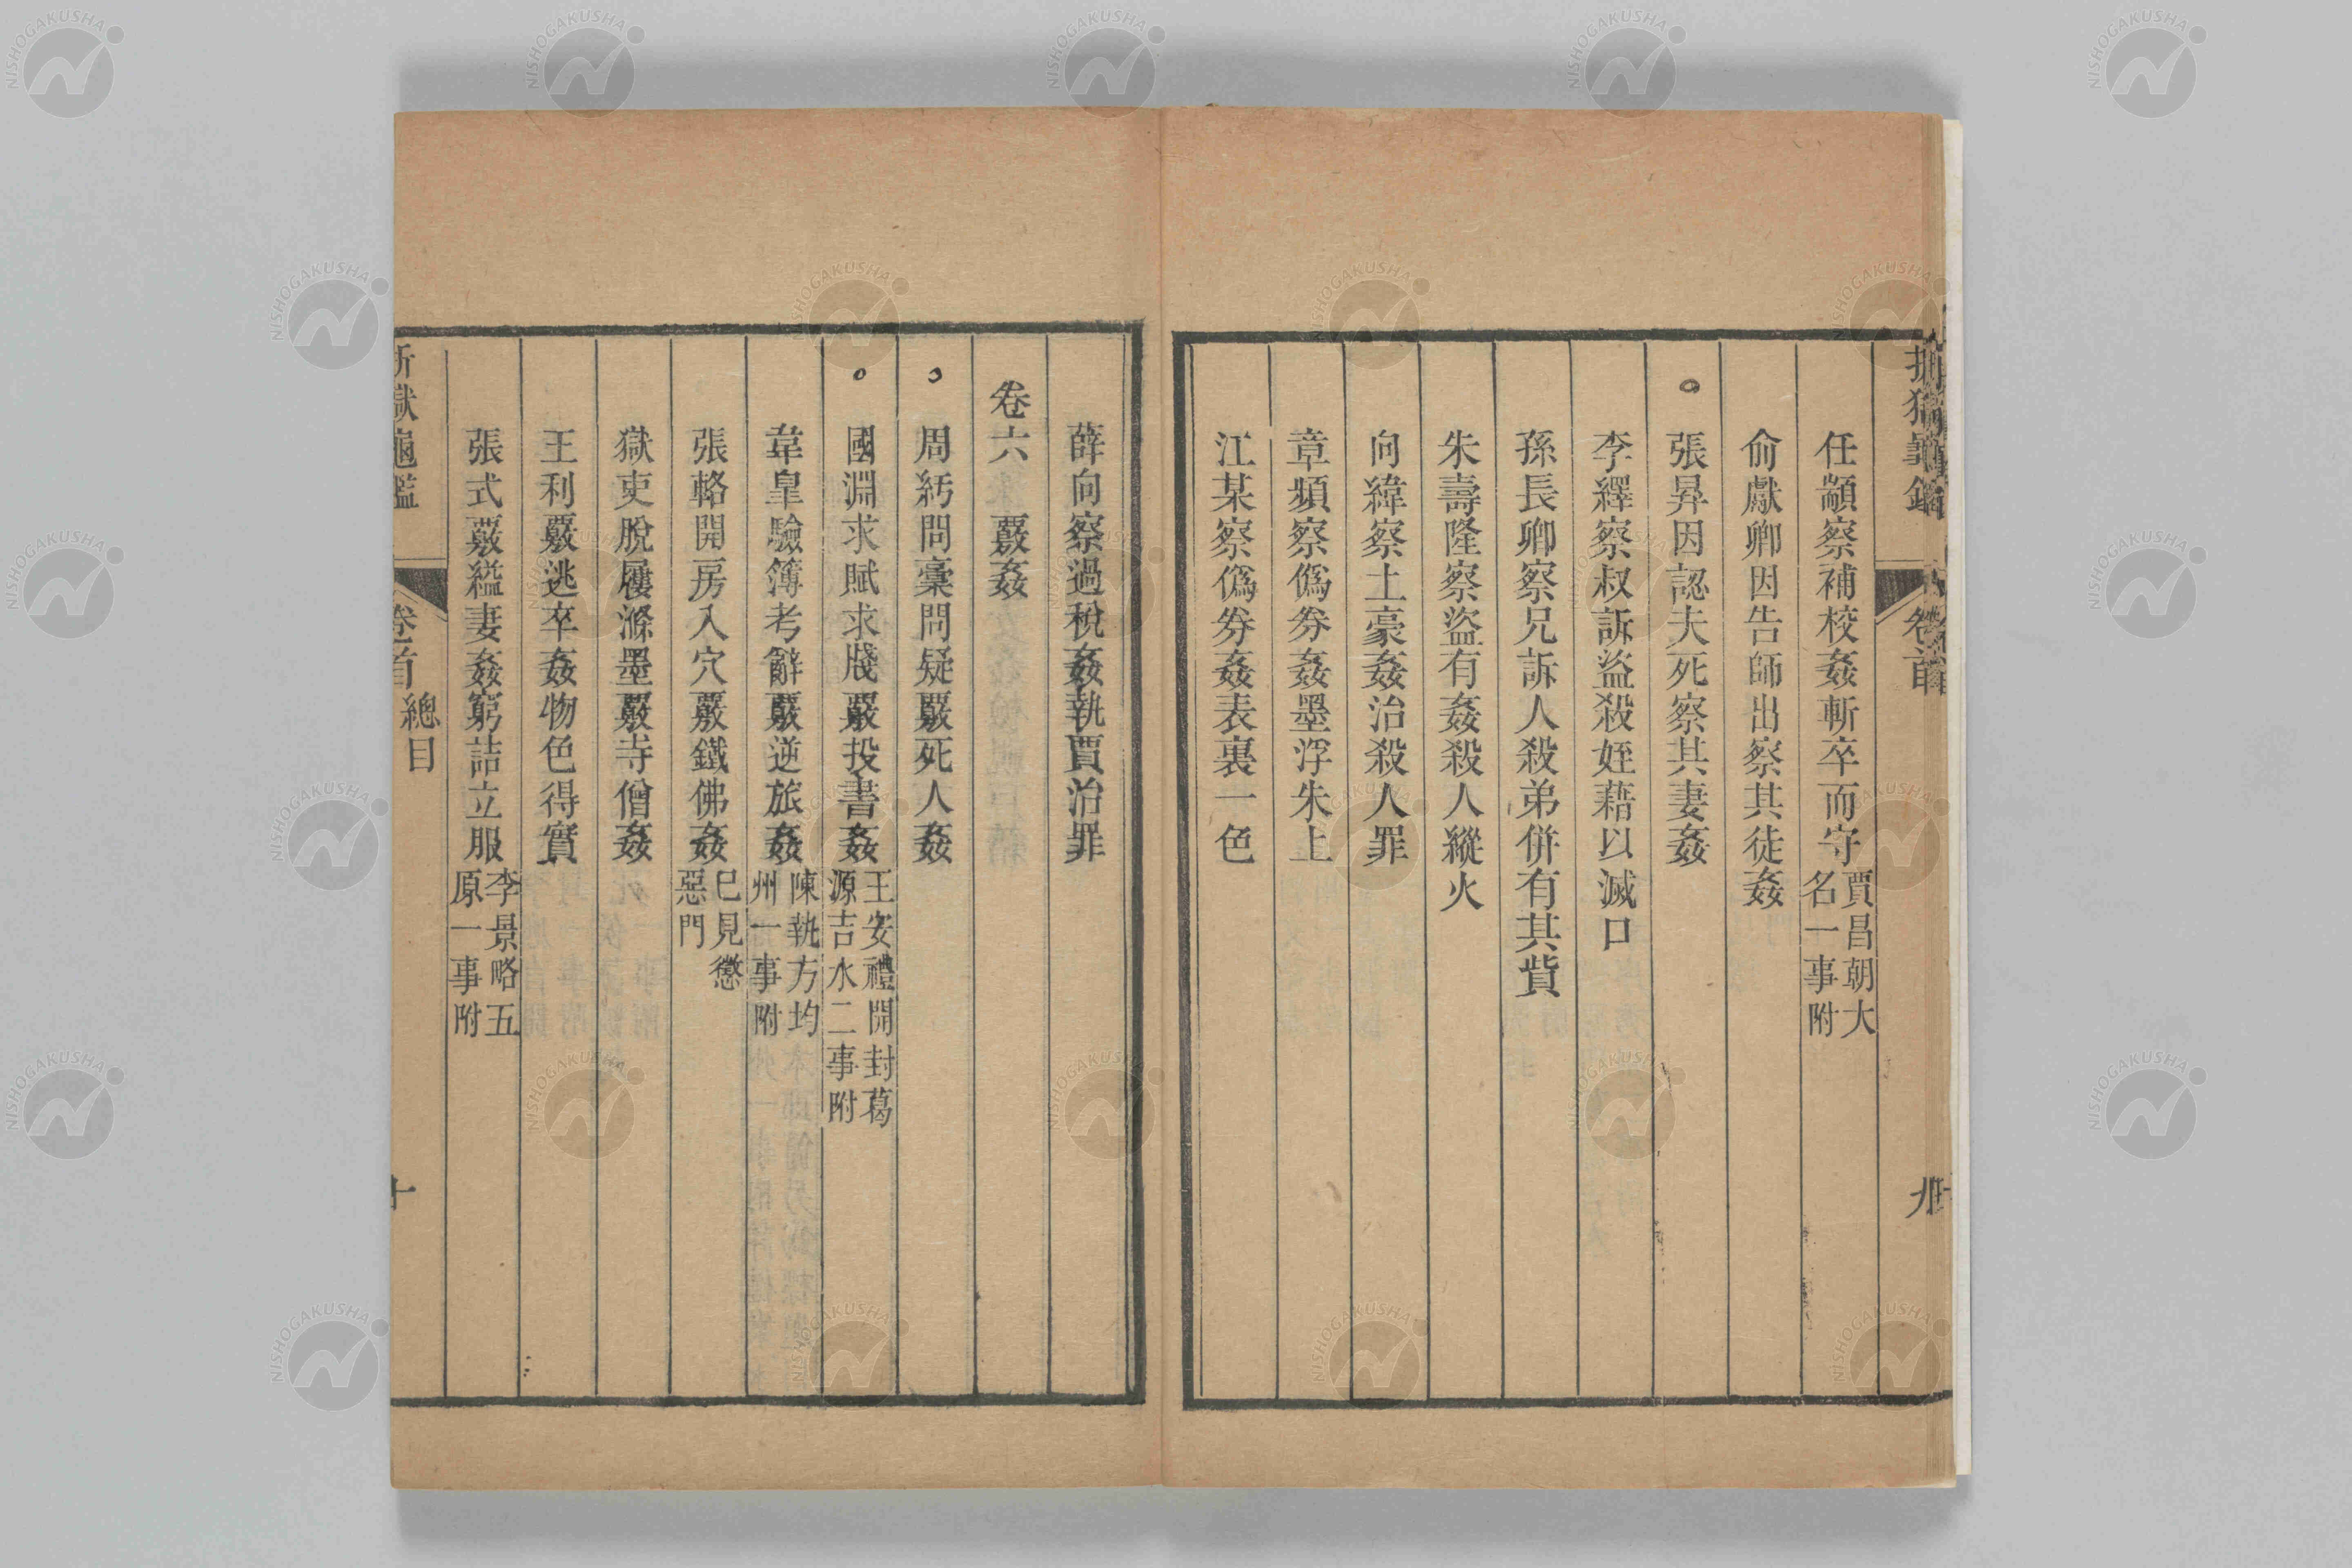 任顓察補校姦斬卒而守賈昌朝大名一事附
俞獻卿因告師出察其徒姦
張昇因認夫死察其妻姦
李繹察叔訴盜殺姪藉以滅口
孫長卿察兄訴人殺弟併有其貲
朱壽隆察盜有姦殺人縱火
向緯察土豪姦治殺人罪
章頻察僞券姦墨浮朱上
江某察僞券姦表裏一色
薛向察過稅姦執賈治罪
卷六 覈姦
周紆問稾問疑覈死人姦
國淵求賦求牋覈投書姦王安禮開封葛源吉水二事附
韋皐驗簿考辭覈逆旅姦陳執方均州一事附
張輅開房入穴覈鐵佛姦已見懲惡門
獄吏脫屨滌墨覈寺僧姦
王利覈逃卒姦物色得實
張式覈縊妻姦窮詰立服李景略五原一事附
折獄龜鑑 卷首 總目 十
NISHOGAKUSHA